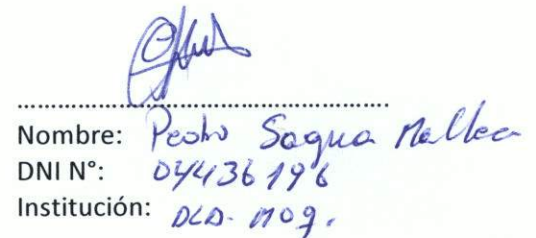 Nombre: Pedro Sagua Mallea
DNI N°: 04436196
Institución: DCD. MOQ.